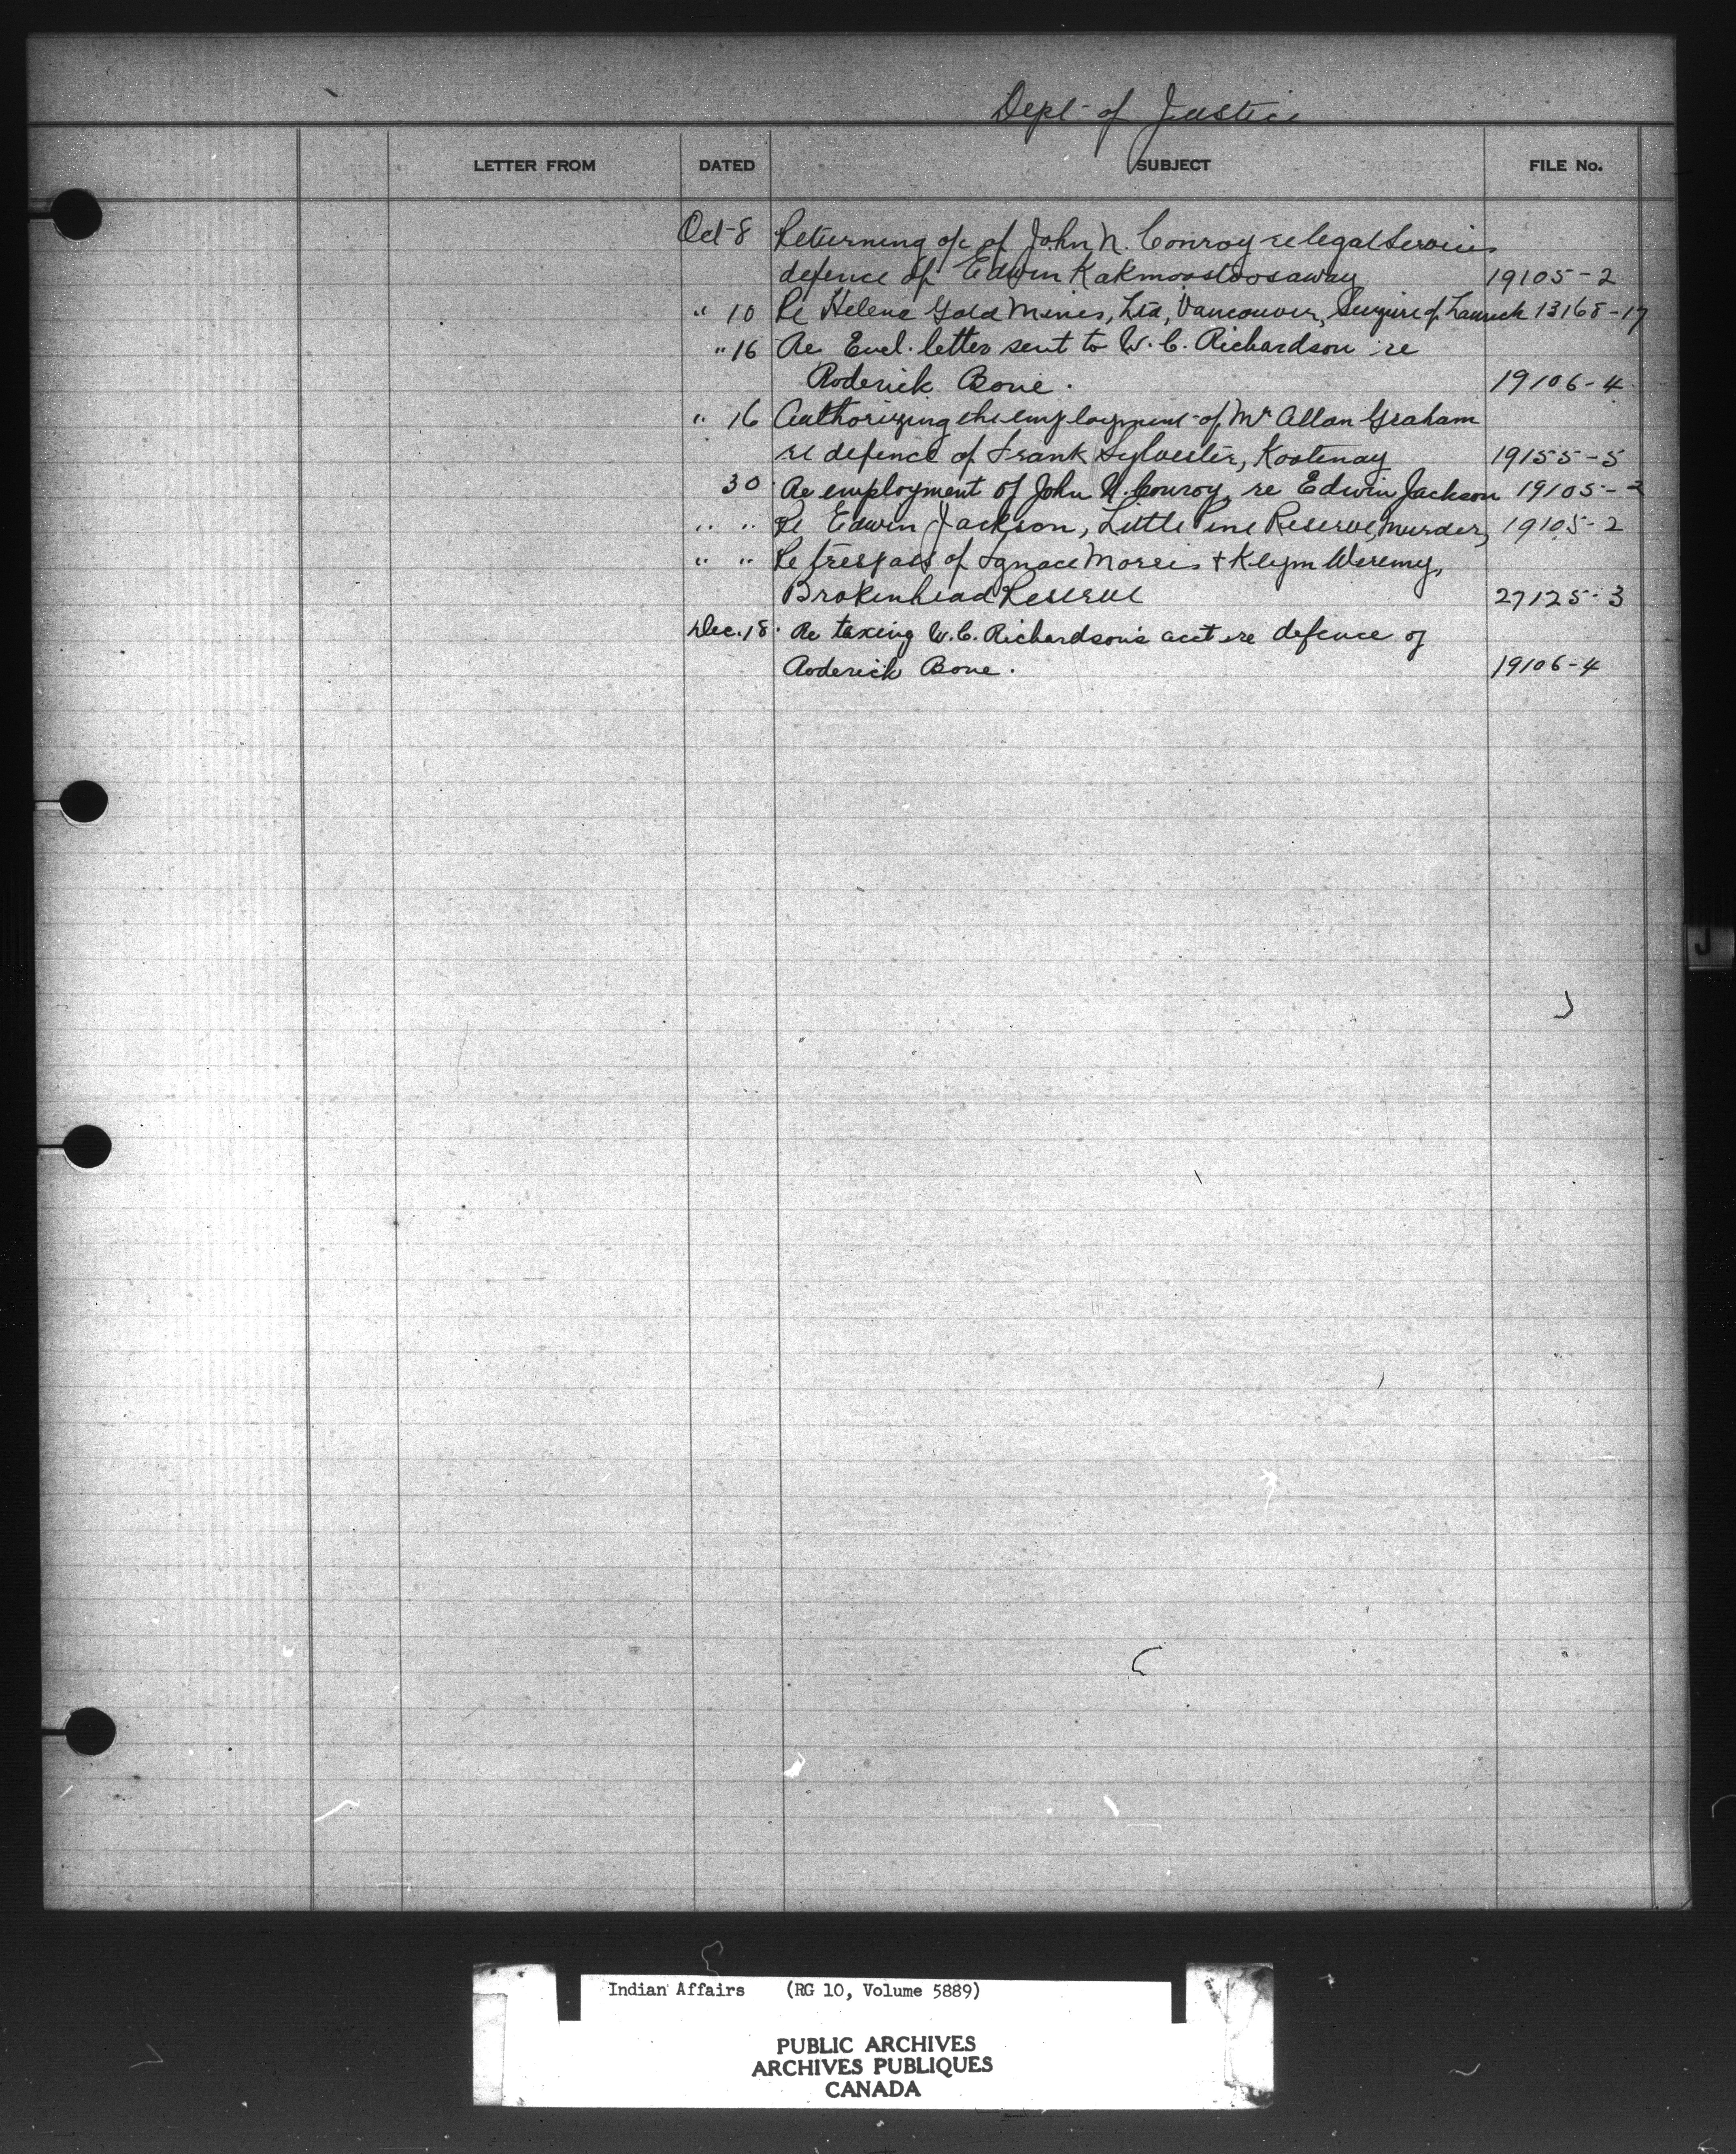 Dept of Justice
LETTER FROM DATED SUBJECT FILE No.
Oct 8 Returning a/c of John N. Conroy re legal Services
defence of Edwin Kakmoostoosaway 19105-2
" 10 Re Helena Gold Mines, Ltd, Vancouver, Seizure of Launch 13168-17
" 16 Re Encl. letter sent to W. C. Richardson re
Roderick Bone. 19106-4
" 16 Authorizing the employment of Mr Allan Graham
re defence of Frank Sylvester, Kootenay 19155-5
30 Re employment of John N. Conroy, re Edwin Jackson 19105-2
" " Re Edwin Jackson, Little Pine Reserve, Murder, 19105-2
" " Re trespass of Ignace Morris + Klym Weremy,
Brokenhead Reserve 27125-3
Dec. 18. Re taxing W. C. Richardson's acct re defence of
Roderick Bone. 19106-4
J
Indian Affairs (RG 10, Volume 5889)
PUBLIC ARCHIVES
ARCHIVES PUBLIQUES
CANADA